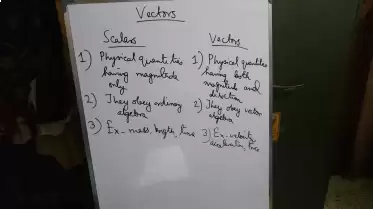 Vectors
Scalars
1) Physical quantities
having magnitude
only
2) They obey ordinary
algebra
3) Ex- mass, length, time
Vectors
1) Physical quantities
having both
magnitude and
direction
2) They obey vector
algebra
3) Ex- velocity,
acceleration, force